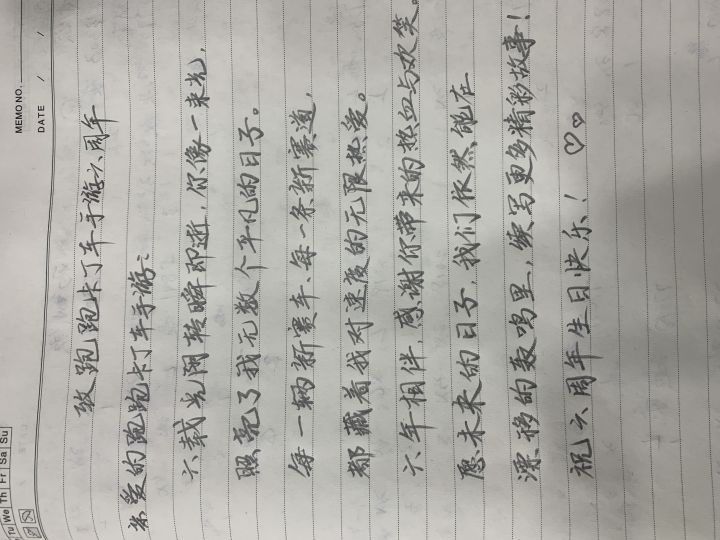 MEMO NO.
DATE / /
Tu We Th Fr Sa Su
致跑跑卡丁车手游六周年
亲爱的跑跑卡丁车手游：
六载光阴转瞬即逝，你像一束光，
照亮了我无数个平凡的日子。
每一辆新赛车、每一条新赛道，
都藏着我对速度的无限热爱。
六年相伴，感谢你带来的热血与欢笑。
愿未来的日子，我们依然能在
漂移的轰鸣里，续写更多精彩故事！
祝六周年生日快乐！♡♡